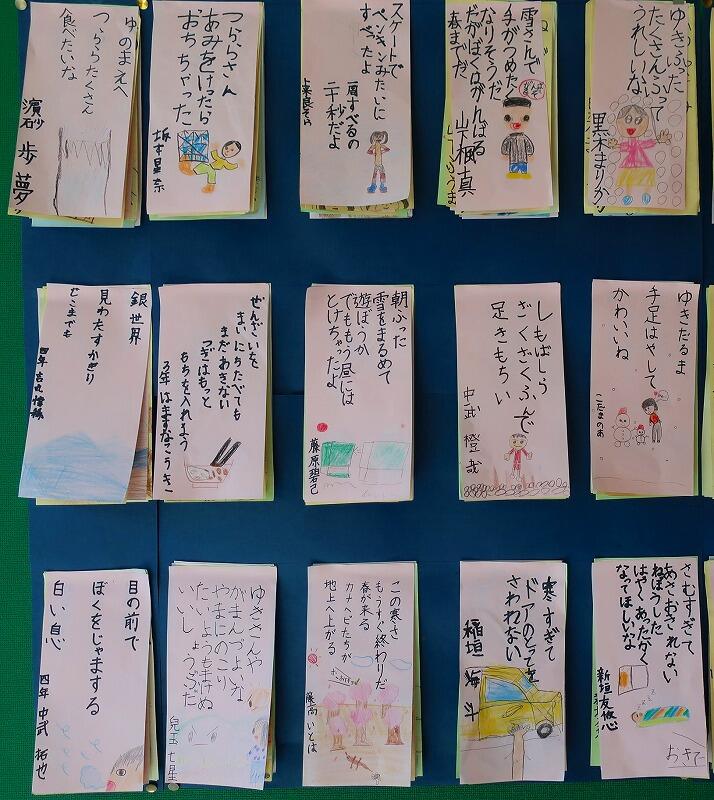 ゆきふった
たくさんふって
うれしいな
黒木まりか
雪さんで
手がつめたく
なりそうだ
だがぼくはがんばる
春までだ
山下楓真
スケートで
ペンギンみたいに
すべったよ
肩すべるの
二千秒だよ
つららさん
あみをけったら
おちちゃった
坂本星奈
ゆのまえへ
つららたくさん
食べたいな
濵砂歩夢
ゆきだるま
手足はやして
かわいいね
こだまのあ
しもばしら
ざくざくふんで
足きもちい
中武橙哉
朝ふった
雪をまるめて
遊ぼうか
でももう昼には
とけちゃったよ
藤原碧己
ぜんざいを
まいにちたべても
まだあきない
つぎはもっと
もちを入れよう
3年はますなこうき
銀世界
見わたすかぎり
どこまでも
四年
さむすぎて
あさおきれない
ねぼうした
はやくあったかく
なってほしいな
新垣友悠心
おきて
寒すぎて
ドアのとってを
さわれない
稲垣海斗
この寒さ
もうすぐ終わりだ
春が来る
カエルヘビたちが
地上へ上がる
藤高いとは
ゆきさんや
がまんづよいな
やまにのこり
たいようもまけぬ
いいしょうぶだ
兒玉七星
目の前で
ぼくをじゃまする
白い息
四年中武拓也